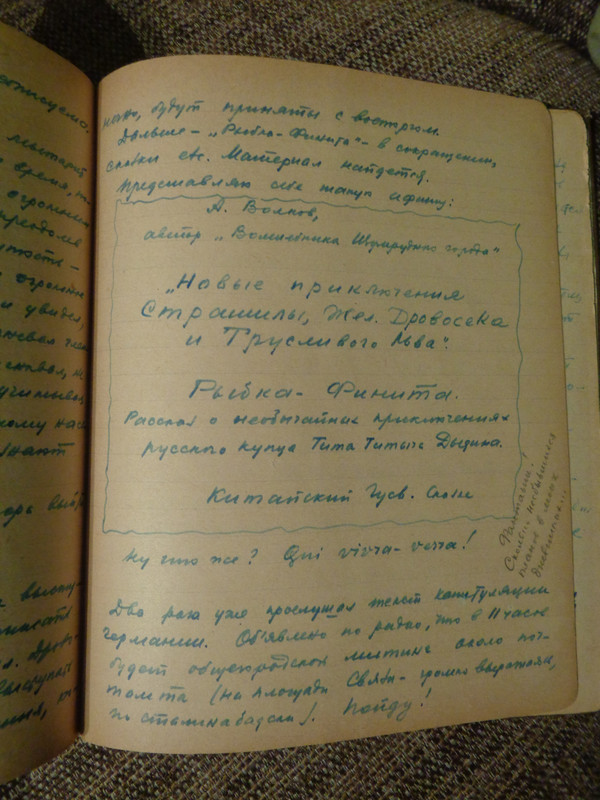 нано, будут приняты с восторгом.
Дальше – „Рыбка-Финита" – в сокращении,
сказки etc. Материал найдется.
Представляю себе такую афишу:
А. Волков,
автор „Волшебника Изумрудного города"
„Новые приключения
Страшилы, Жел. Дровосека
и Трусливого Льва".
Рыбка-Финита.
Рассказ о необычайных приключениях
русского купца Тита Титыча
Китайский Гусь. Сказки
Ну что же? Qui vivra-verra!
Фантазии!
Сколько несбывшихся
планов в моих
дневниках...
Два раза уже прослушал текст капитуляции
Германии. Объявлено по радио, что в 11 часов
будет общегородской митинг около поч-
тамта (на площади Связи – громко выражаясь,
по сталинабадски). Пойду!
описуемо.
время,
огромн
увидел,